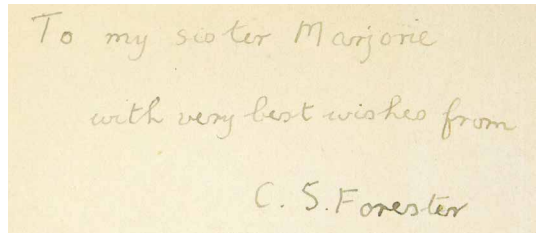 To my sister Marjorie
with very best wishes from
C. S. Forester